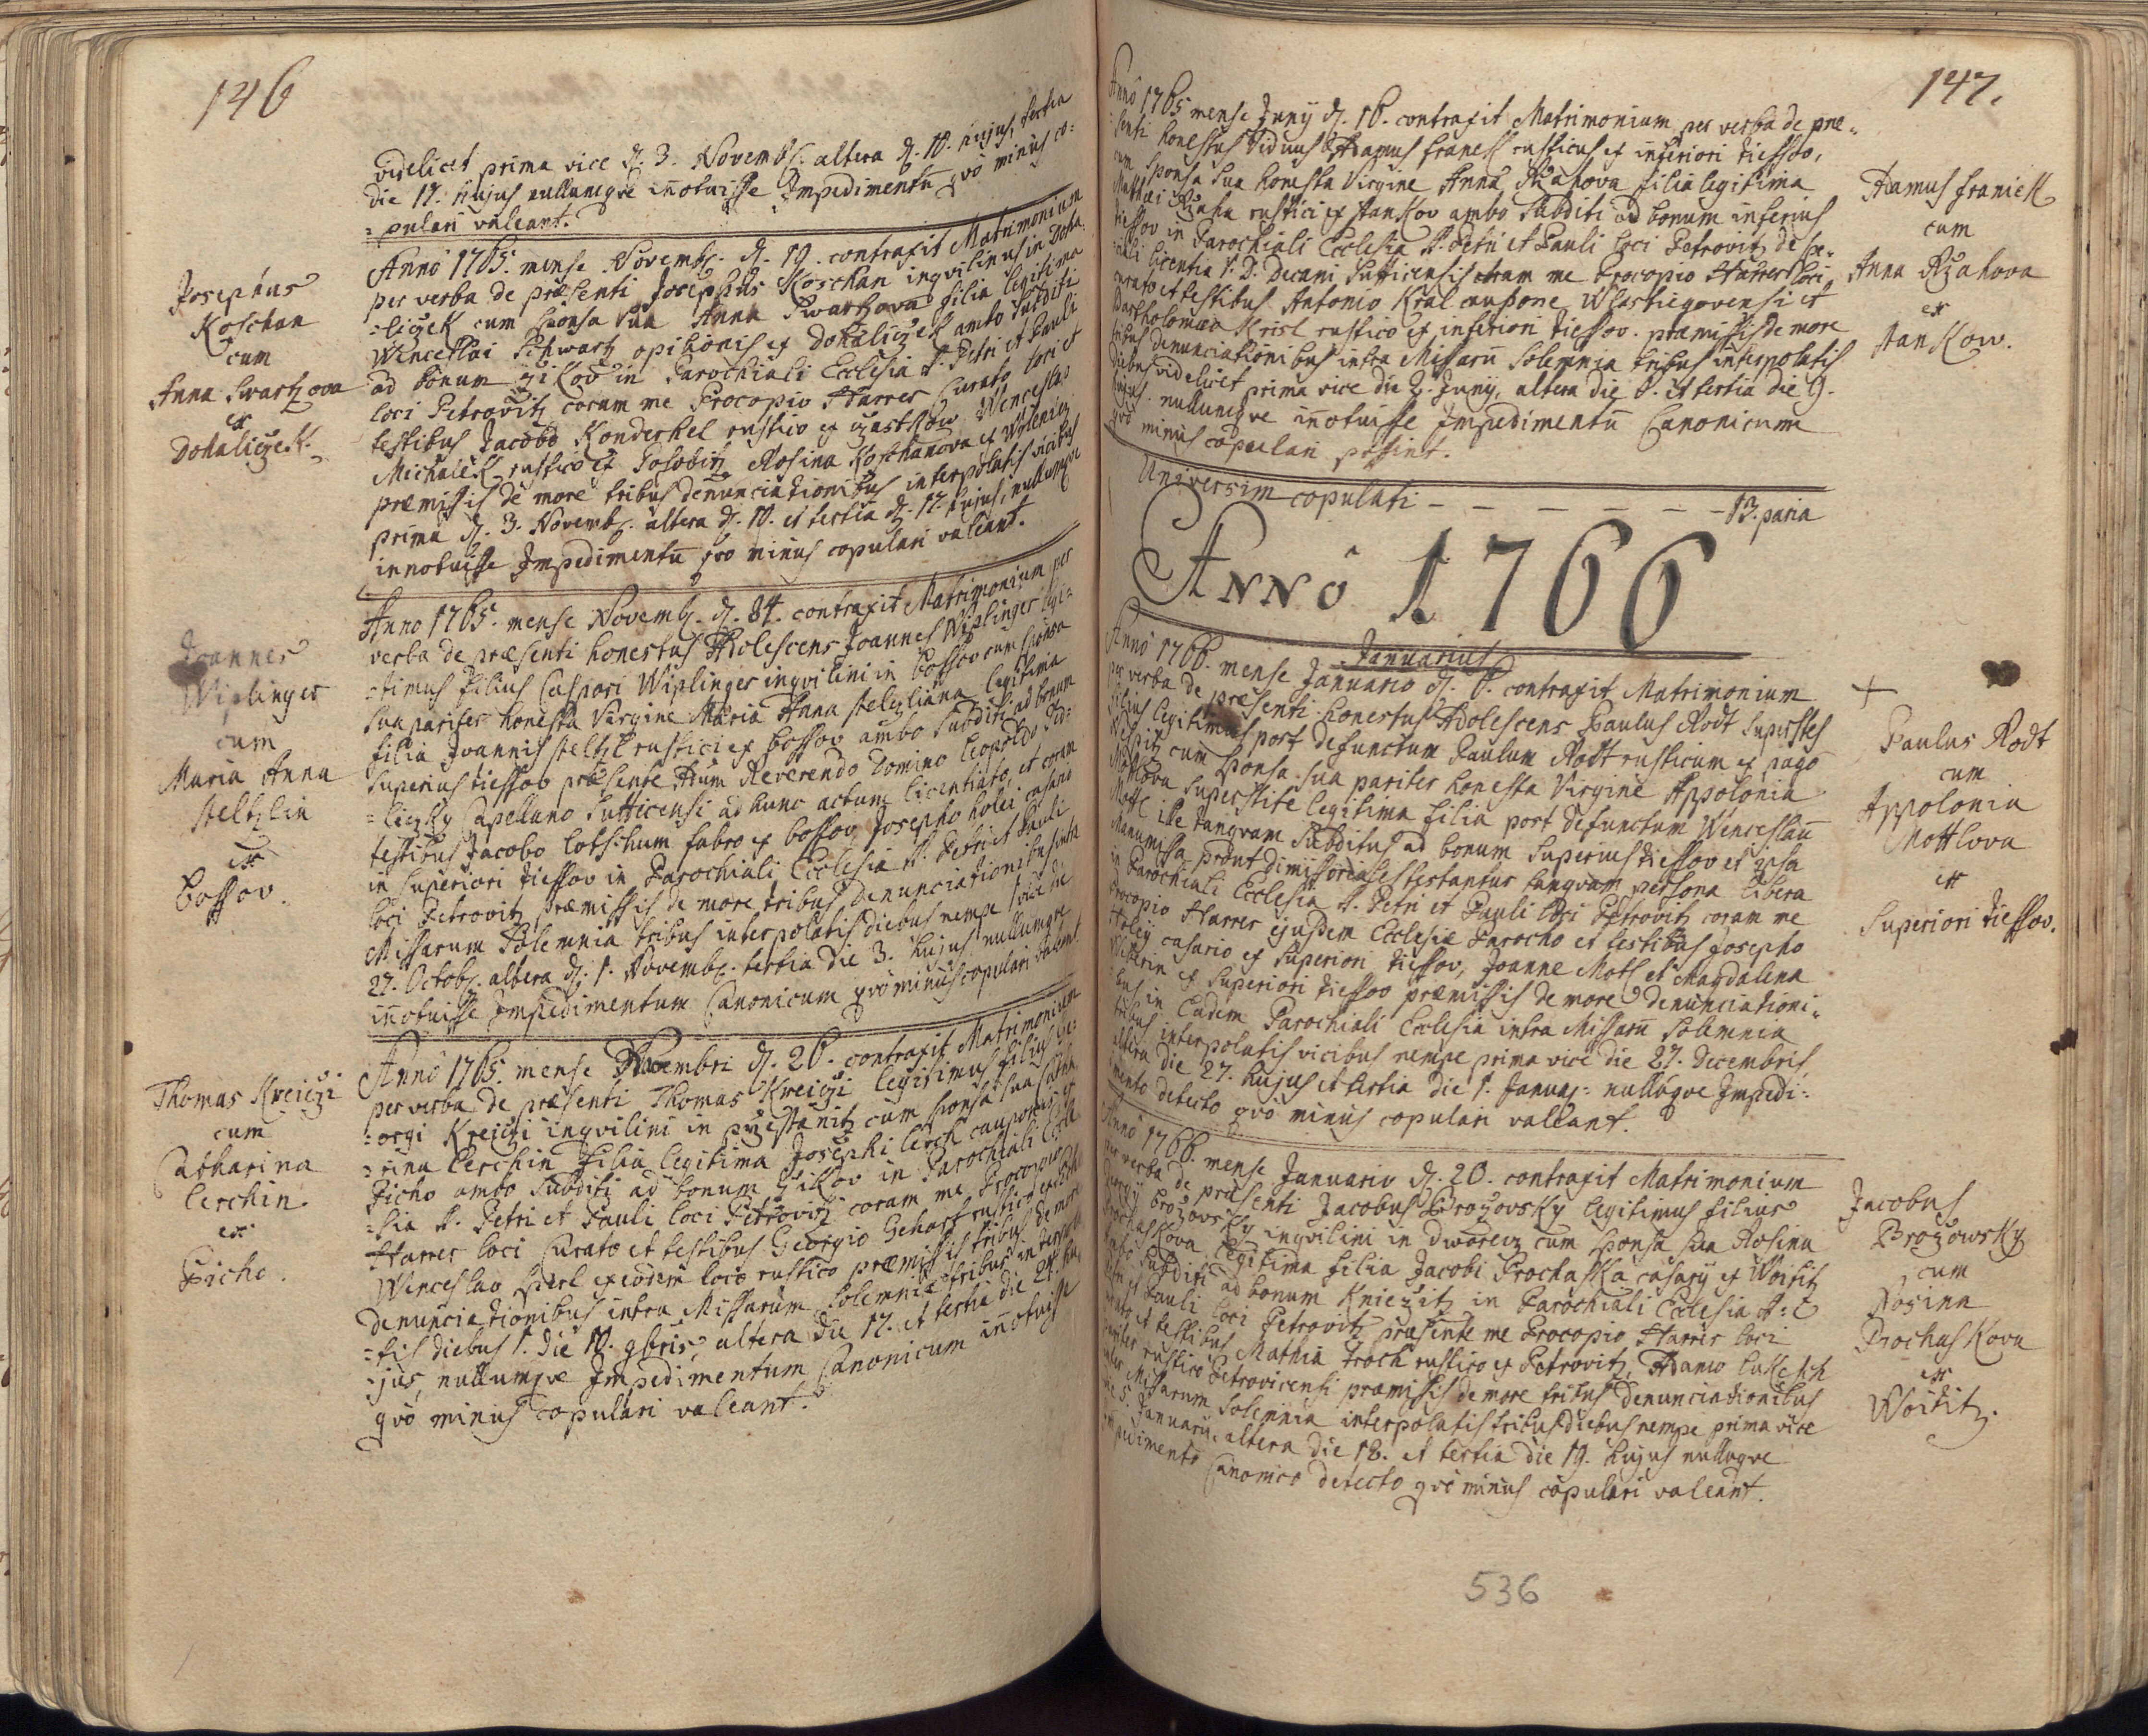 146
videlicet prima vice d. 3. Novemb. altera d. 10. hujus, tertia
die 17. hujus nullumqve inotuisse Impedimentu quo minus co=
=pulari valeant.
Josephus
Koschan
cum
Anna Swartzova
ex
Dohaliczek.
Anno 1765. mense Novemb. d. 19. contraxit Matrimonium
per verba de præsenti Josephus Koschan inqvilinus in Doha
=liczek cum sponsa sua Anna Swartzova filia legitima
Wenceslai Schwartz opilionis ex Dohaliczek ambo Subditi
ad bonum Zikov in Parochiali Ecclesia S. Petri et Pauli
loci Petrovitz coram me Procopio Harrer Curato loci et
testibus Jacobo Konderhel rustico ex Wenceslao
Michalek rustico ex Rosina Koschanova ex
præmissis de more tribus denunciationibus interpolatis vicibus
prima d. 3. Novemb. altera d. 10. et tertia d. 17. hujus, nullumqve
innotuisse Impedimentu quo minus copulari valeant.
Joannes
Wiplinger
cum
Maria Anna
Steltzlin
ex
Bossov.
Anno 1765. mense Novemb. d. 24. contraxit Matrimonium per
verba de præsenti honestus Adolescens Joannes Wiplinger legi=
=timus filius Caspari Wiplinger inqvilini in Bossov cum sponsa
sua pariter honesta Virgine Maria Anna Steltzliana legitima
filia Joannis Steltzl rustici ex Bossov ambo Subditi ad bonum
Superius Tiessov præsente Adm Reverendo Domino Leopoldo
=liczky Capellano Sutticensi ad hunc actum licentiato, et coram
testibus Jacobo Lotschum fabro ex Bossov Josepho Holei casario
in Superiori Tiessov in Parochiali Ecclesia S. Petri et Pauli
loci Petrovitz præmissis de more tribus denunciationibus intra
Missarum Solemnia tribus interpolatis diebus nempe 1 vice die
27. Octob. altera d. 1. Novemb. tertia die 3. hujus nullumqve
inotuisse Impedimentum Canonicum quo minus copulari valeant
Thomas Kreiczi
cum
Catharina
Lerchin.
ex
Picho.
Anno 1765. mense Novembri d. 26. contraxit Matrimonium
per verba de præsenti Thomas Kreiczi legitimus filius Ge=
=orgi Kreiczi inqvilini in Przestanitz cum sponsa sua Catha
=rina Lerchin filia legitima Josephi Lerch cauponis ex
Picho ambo Subditi ad bonum Zikov in Parochiali Eccle
=sia S. Petri et Pauli loci Petrovitz coram me Procopio
Harrer loci Curato et testibus Georgio Gehart rustico ex
Wenceslao Sperl ex eodem loco rustico præmissis tribus de more
denunciationibus intra Missarum Solemnia tribus interpola
=tis diebus 1. die 10. 9bris, altera die 17. et tertia die 24. hu
=jus, nullumqve Impedimentum Canonicum inotuisse
quo minus copulari valeant.
147.
Anno 1765 mense Junij d. 16. contraxit Matrimonium per verba de præ=
=senti honestus Viduus Adamus Franek rusticus ex inferiori Tiessov,
cum Sponsa sua honesta Virgine Anna Rzahova filia legitima
Matthæi Rzaha rustici ex Stankov ambo Subditi ad bonum inferius
Tiessov in Parochiali Ecclesia S. Petri et Pauli loci Petrovitz de spe=
=ciali licentia P. D. Decani Sutticensis coram me Procopio Harrer loci
curato et testibus Antonio Kral caupone Wlastiegovensi et
Bartholomæo Krisl rustico ex inferiori Tiessov. præmissis de more
tribus denunciationibus intra Missaru Solemnia tribus interpolatis
diebus videlicet prima vice die 2. Junij, altera die 6. et tertia die 9.
hujus. nullumqve inotuisse Impedimentu Canonicum
quo minus copulari possint.
Adamus Franiek
cum
Anna Rzahova
ex
Stankow.
Universim copulati - - - - - - 13. paria
ANNO 1766
Januarius
Anno 1766. mense Januario d. 6. contraxit Matrimonium
per verba de præsenti honestus Adolescens Paulus Rodt Superstes
filius legitimus post defunctum Paulum Rodt rusticum ex pago
cum Sponsa sua pariter honesta Virgine Appolonia
Mottlova Superstite legitima filia post defunctum Wenceslau
Mottl ille tanqvam Subditus ad bonum Superius Tiessov et ipsa
Manumissa prout dimissoriales testantur tanqvam persona libera
in Parochiali Ecclesia S. Petri et Pauli loci Petrovitz coram me
Procopio Harrer ejusdem Ecclesiæ Parocho et testibus Josepho
Holeij casario ex Superiori Tiessov, Joanne Mottl et Magdalena
ex Superiori Tiessov præmissis de more denunciationi=
=bus in Eadem Parochiali Ecclesia intra Missaru Solemnia
tribus interpolatis vicibus nempe prima vice die 27. Decembris,
altera die 27. hujus et tertia die 1. Januarj: nulloqve Impedi=
=mento detecto quo minus copulari valeant.
+
Paulus Rodt
cum
Appolonia
Mottlova
ex
Superiori Tiessov.
Anno 1766. mense Januario d. 20. contraxit Matrimonium
per verba de præsenti Jacobus Brozovsky legitimus filius
Georgij Brozovsky inqvilini in Dworecz cum sponsa sua Rosina
Prochaskova legitima filia Jacobi Prochaska casarij ex Woititz
ambo Subditi ad bonum Kniezitz in Parochiali Ecclesia S:
Petri et Pauli loci Petrovitz præsente me Procopio Harrer loci
Curato et testibus Mathia Troch rustico ex Petrovitz, Adamo Lukesch
pariter rustico Petrovicensi præmissis de more tribus denunciationibus
inter Missarum Solemnia interpolatis tribus diebus nempe prima vice
die 5. Januarii, altera die 18. et tertia die 19. hujus nulloqve
Impedimento Canonico detecto quo minus copulari valeant.
Jacobus
Brozowsky
cum
Rosina
Prochaskova
ex
Woititz.
536